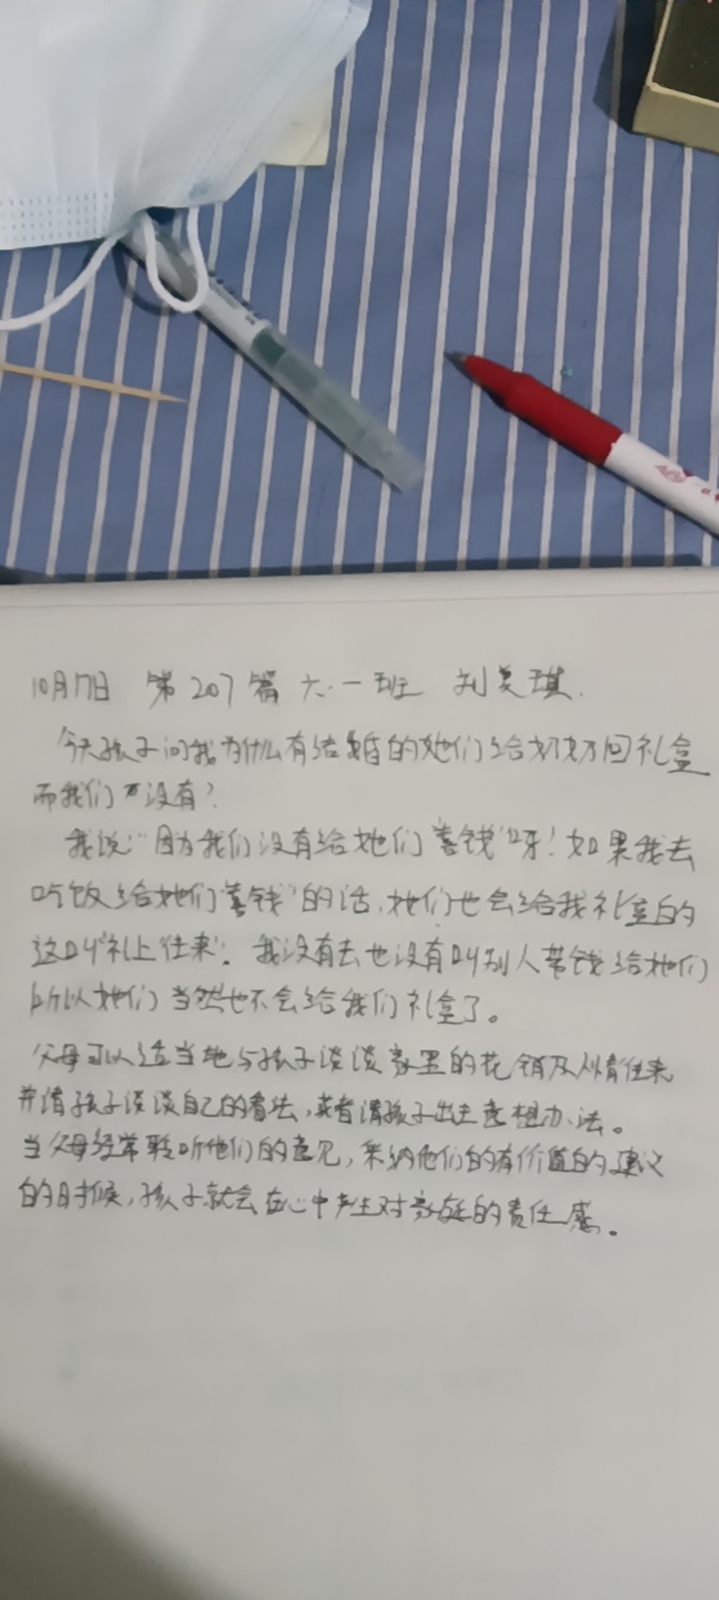 10月17日 第207篇 六.一班 刘美琪.
今天孩子问我为什么有结婚的她们给奶奶回礼盒
而我们没有?
我说:"因为我们没有给她们"喜钱"呀!如果我去
吃饭给她们"喜钱"的话,她们也会给我礼盒的
这叫"礼上往来".我没有去也没有叫别人带钱给她们
所以她们当然也不会给我们礼盒了。
父母可以适当地与孩子谈谈家里的花销及人情往来
并请孩子谈谈自己的看法,或者请孩子出主意想办法。
当父母经常聆听他们的意见,采纳他们的有价值的建议
的时候,孩子就会在心中产生对家庭的责任感。